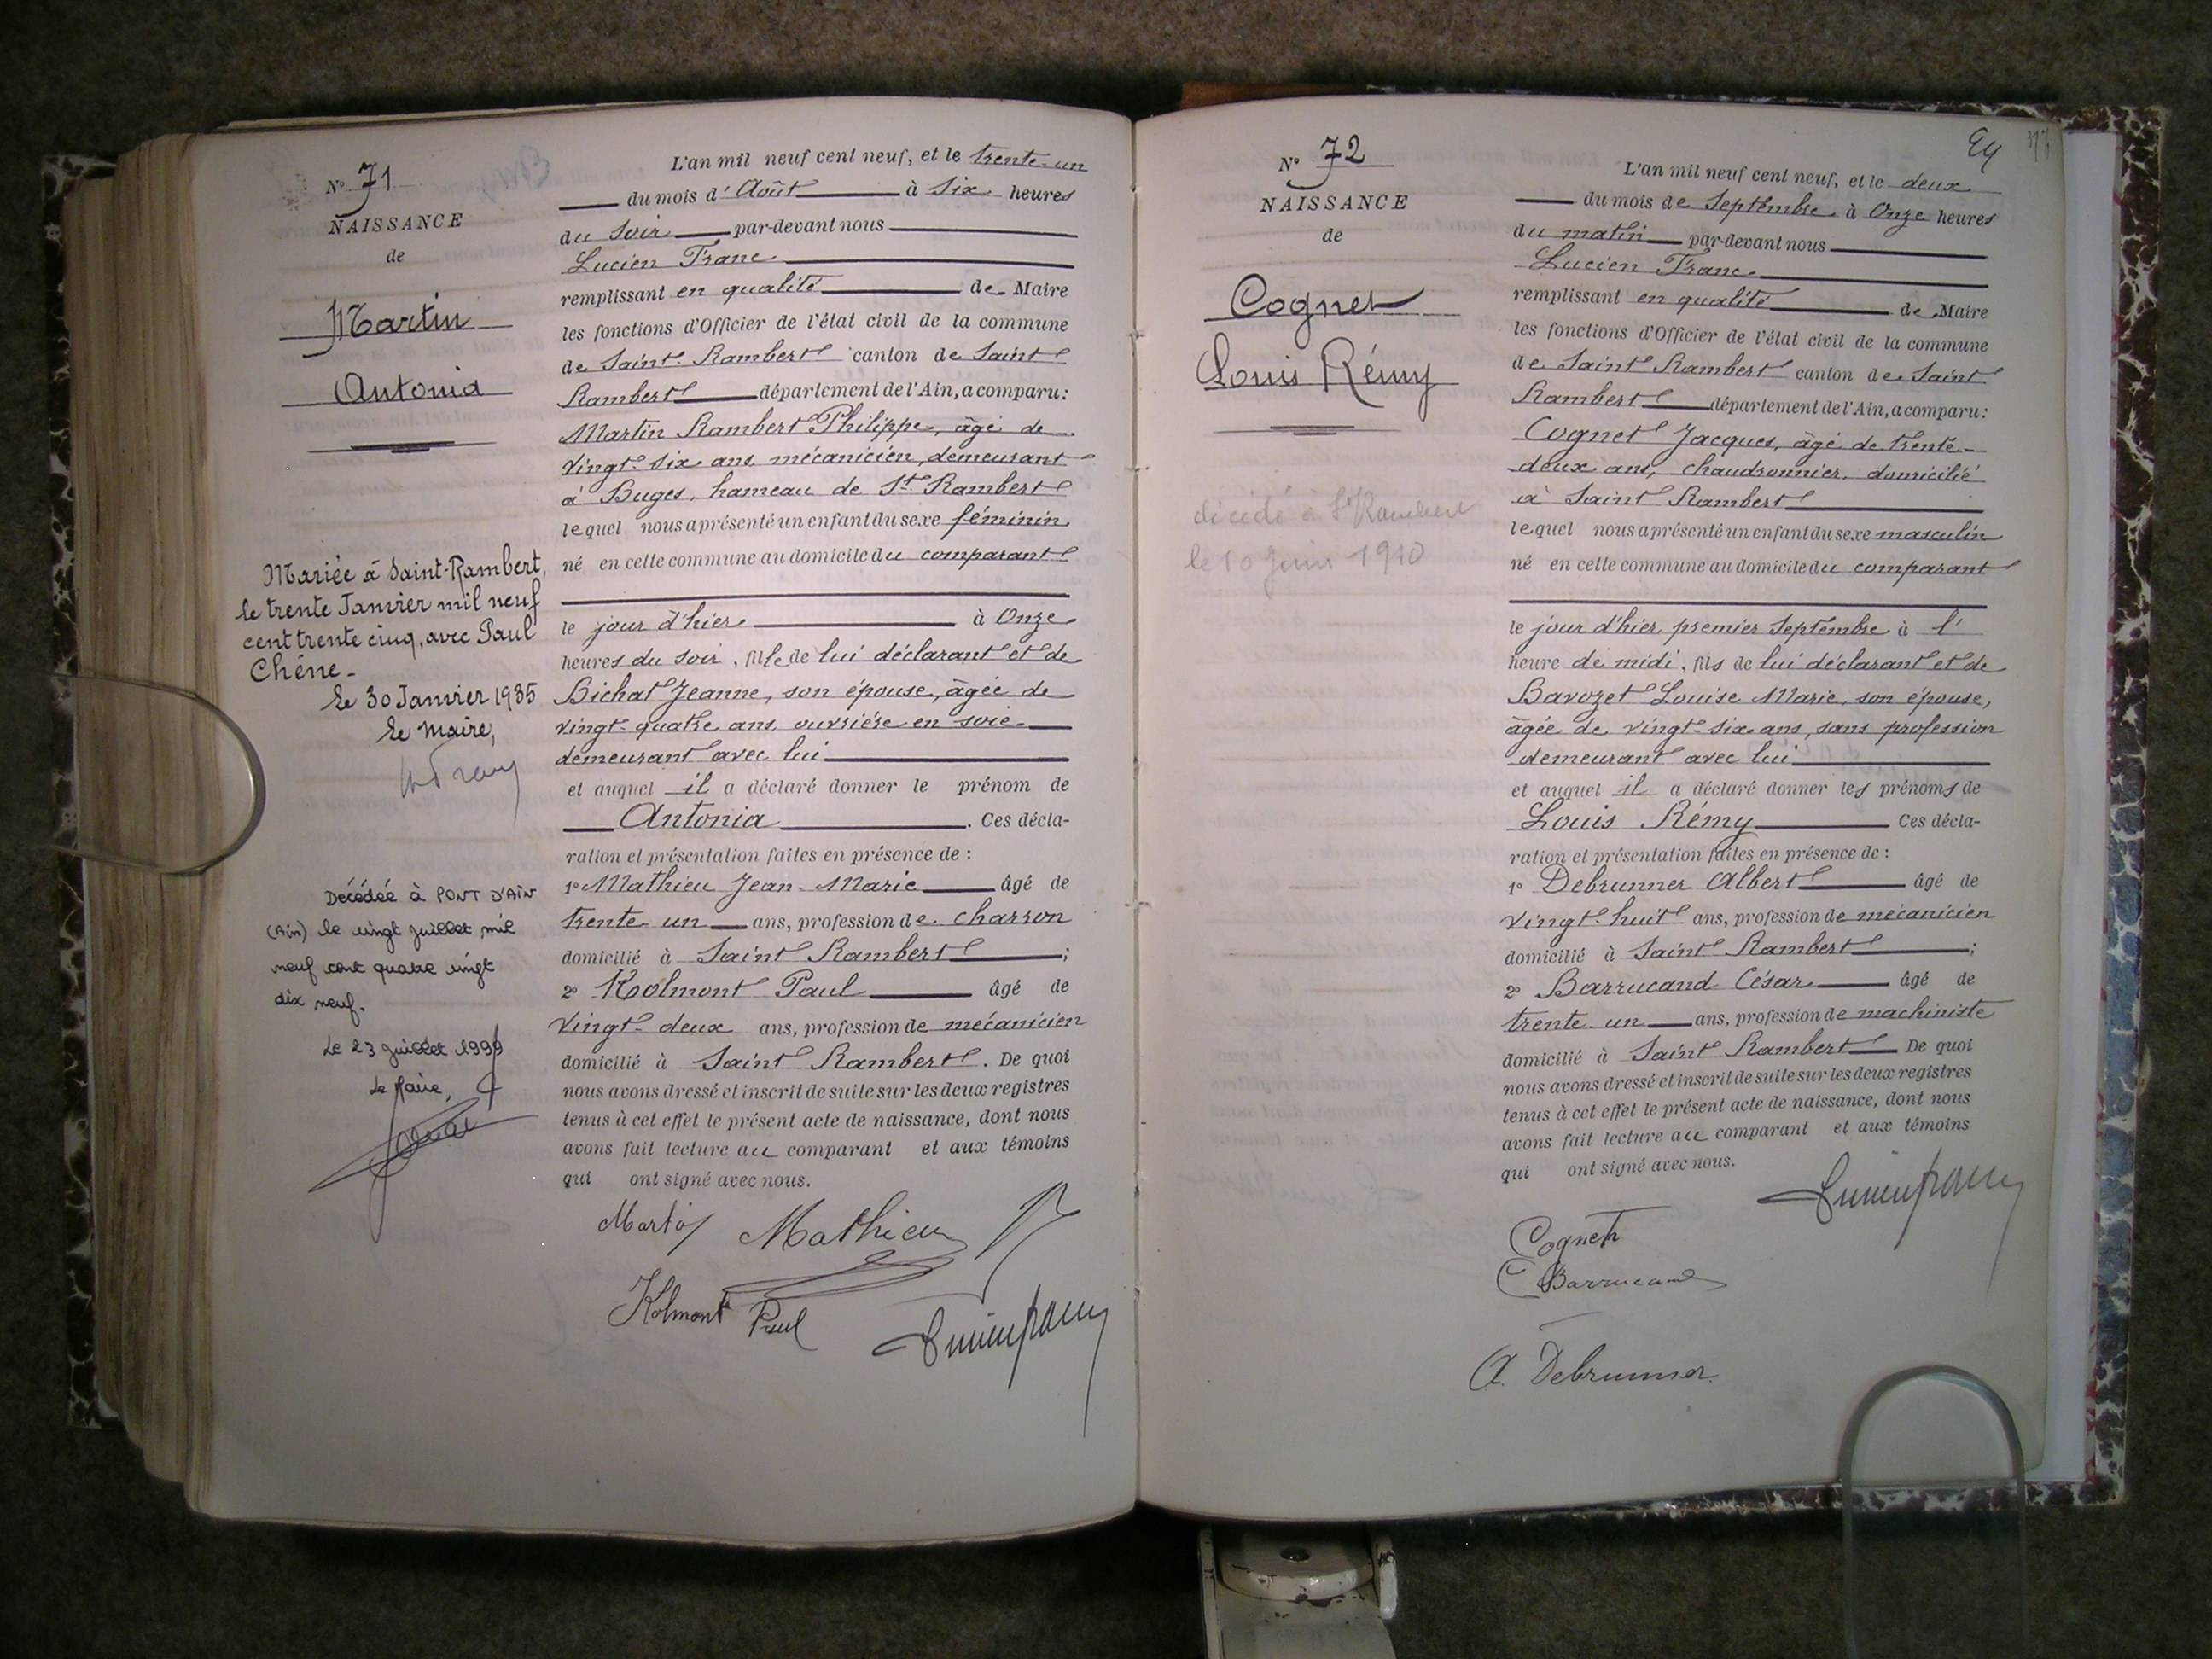 N° 71
NAISSANCE
de
Martin
Antonia
Mariée à Saint-Rambert,
le trente Janvier mil neuf
cent trente cinq, avec Paul
Chêne.
Le 30 Janvier 1935
Le Maire,
Décédée à PONT D'AIN
(Ain) le vingt juillet mil
neuf cent quatre vingt
dix neuf.
Le 23 juillet 1999
Le Maire,
L'an mil neuf cent neuf, et le trente-un
du mois d'Août à six heures
du soir par-devant nous
Lucien Franc
remplissant en qualité de Maire
les fonctions d'Officier de l'état civil de la commune
de Saint-Rambert canton de Saint
Rambert département de l'Ain, a comparu:
Martin Rambert Philippe, âgé de
vingt-six ans, mécanicien, demeurant
à Buges, hameau de St Rambert
lequel nous a présenté un enfant du sexe féminin
né en cette commune au domicile du comparant
le jour d'hier à Onze
heures du soir, fille de lui déclarant et de
Bichat Jeanne, son épouse, âgée de
vingt-quatre ans, ouvrière en soie
demeurant avec lui
et auquel il a déclaré donner le prénom de
Antonia. Ces décla-
ration et présentation faites en présence de :
1° Mathieu Jean-Marie âgé de
trente-un ans, profession de charron
domicilié à Saint Rambert ;
2° Kolmont Paul âgé de
vingt-deux ans, profession de mécanicien
domicilié à Saint Rambert. De quoi
nous avons dressé et inscrit de suite sur les deux registres
tenus à cet effet le présent acte de naissance, dont nous
avons fait lecture au comparant et aux témoins
qui ont signé avec nous.
Martin Mathieu
Kolmont Paul Lucien Franc
N° 72
NAISSANCE
de
Cognet
Louis Rémy
décédé à St Rambert
le 10 juin 1910
94
L'an mil neuf cent neuf, et le deux
du mois de Septembre à Onze heures
du matin par-devant nous
Lucien Franc
remplissant en qualité de Maire
les fonctions d'Officier de l'état civil de la commune
de Saint Rambert canton de Saint
Rambert département de l'Ain, a comparu:
Cognet Jacques, âgé de trente-
deux ans, chaudronnier, domicilié
à Saint Rambert
lequel nous a présenté un enfant du sexe masculin
né en cette commune au domicile du comparant
le jour d'hier, premier Septembre à l'
heure de midi, fils de lui déclarant et de
Bavozet Louise Marie, son épouse,
âgée de vingt-six ans, sans profession
demeurant avec lui
et auquel il a déclaré donner les prénoms de
Louis Rémy Ces décla-
ration et présentation faites en présence de :
1° Debrunner Albert âgé de
vingt-huit ans, profession de mécanicien
domicilié à Saint Rambert ;
2° Barrucand César âgé de
trente-un ans, profession de machiniste
domicilié à Saint Rambert De quoi
nous avons dressé et inscrit de suite sur les deux registres
tenus à cet effet le présent acte de naissance, dont nous
avons fait lecture au comparant et aux témoins
qui ont signé avec nous.
Lucien Franc
Cognet
C Barrucand
A. Debrunner